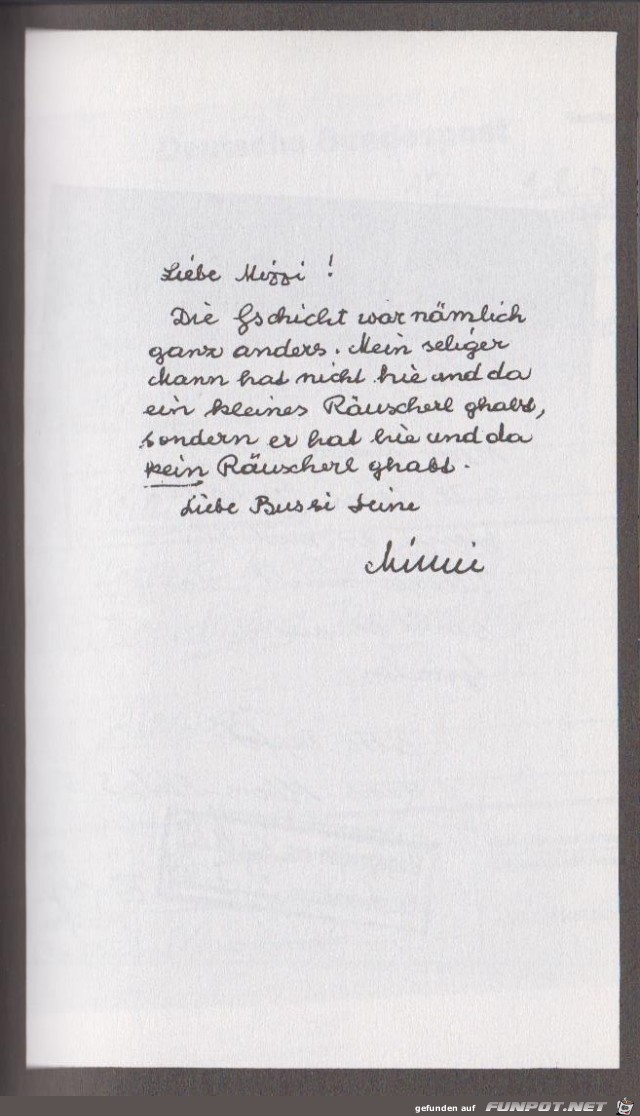 Liebe Mizzi !
Die Gschicht war nämlich
ganz anders. Mein seliger
Mann hat nicht hie und da
ein kleines Räuscherl ghabt,
sondern er hat hie und da
kein Räuscherl ghabt.
Liebe Bussi Deine
Mimi
gefunden auf FUNPOT.NET